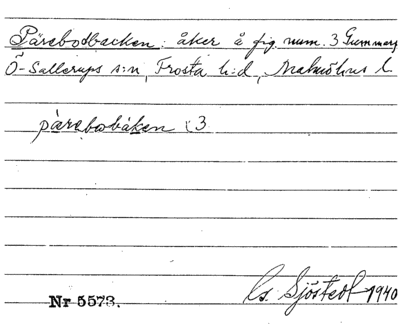 Pärebodbacken: åker å fig. num. 3 Gummarp
Ö-Sallerups s:n, Frosta h:d, Malmöhus l.
pärebobáken 3
Nr 5573.
Cs. Sjöstedt 1940